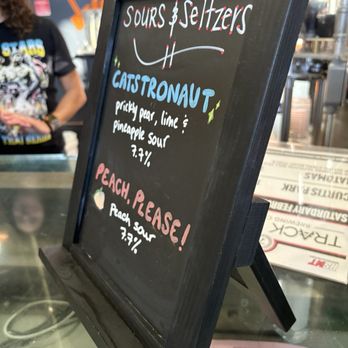 SOURS & SELTZERS
CATSTRONAUT
prickly pear, lime &
pineapple sour
7.7%
PEACH, PLEASE!
Peach sour
7.7%
STARS
NATOMAS
CURTIS PARK
SATURDAY FEBR
TRACK
BREWING